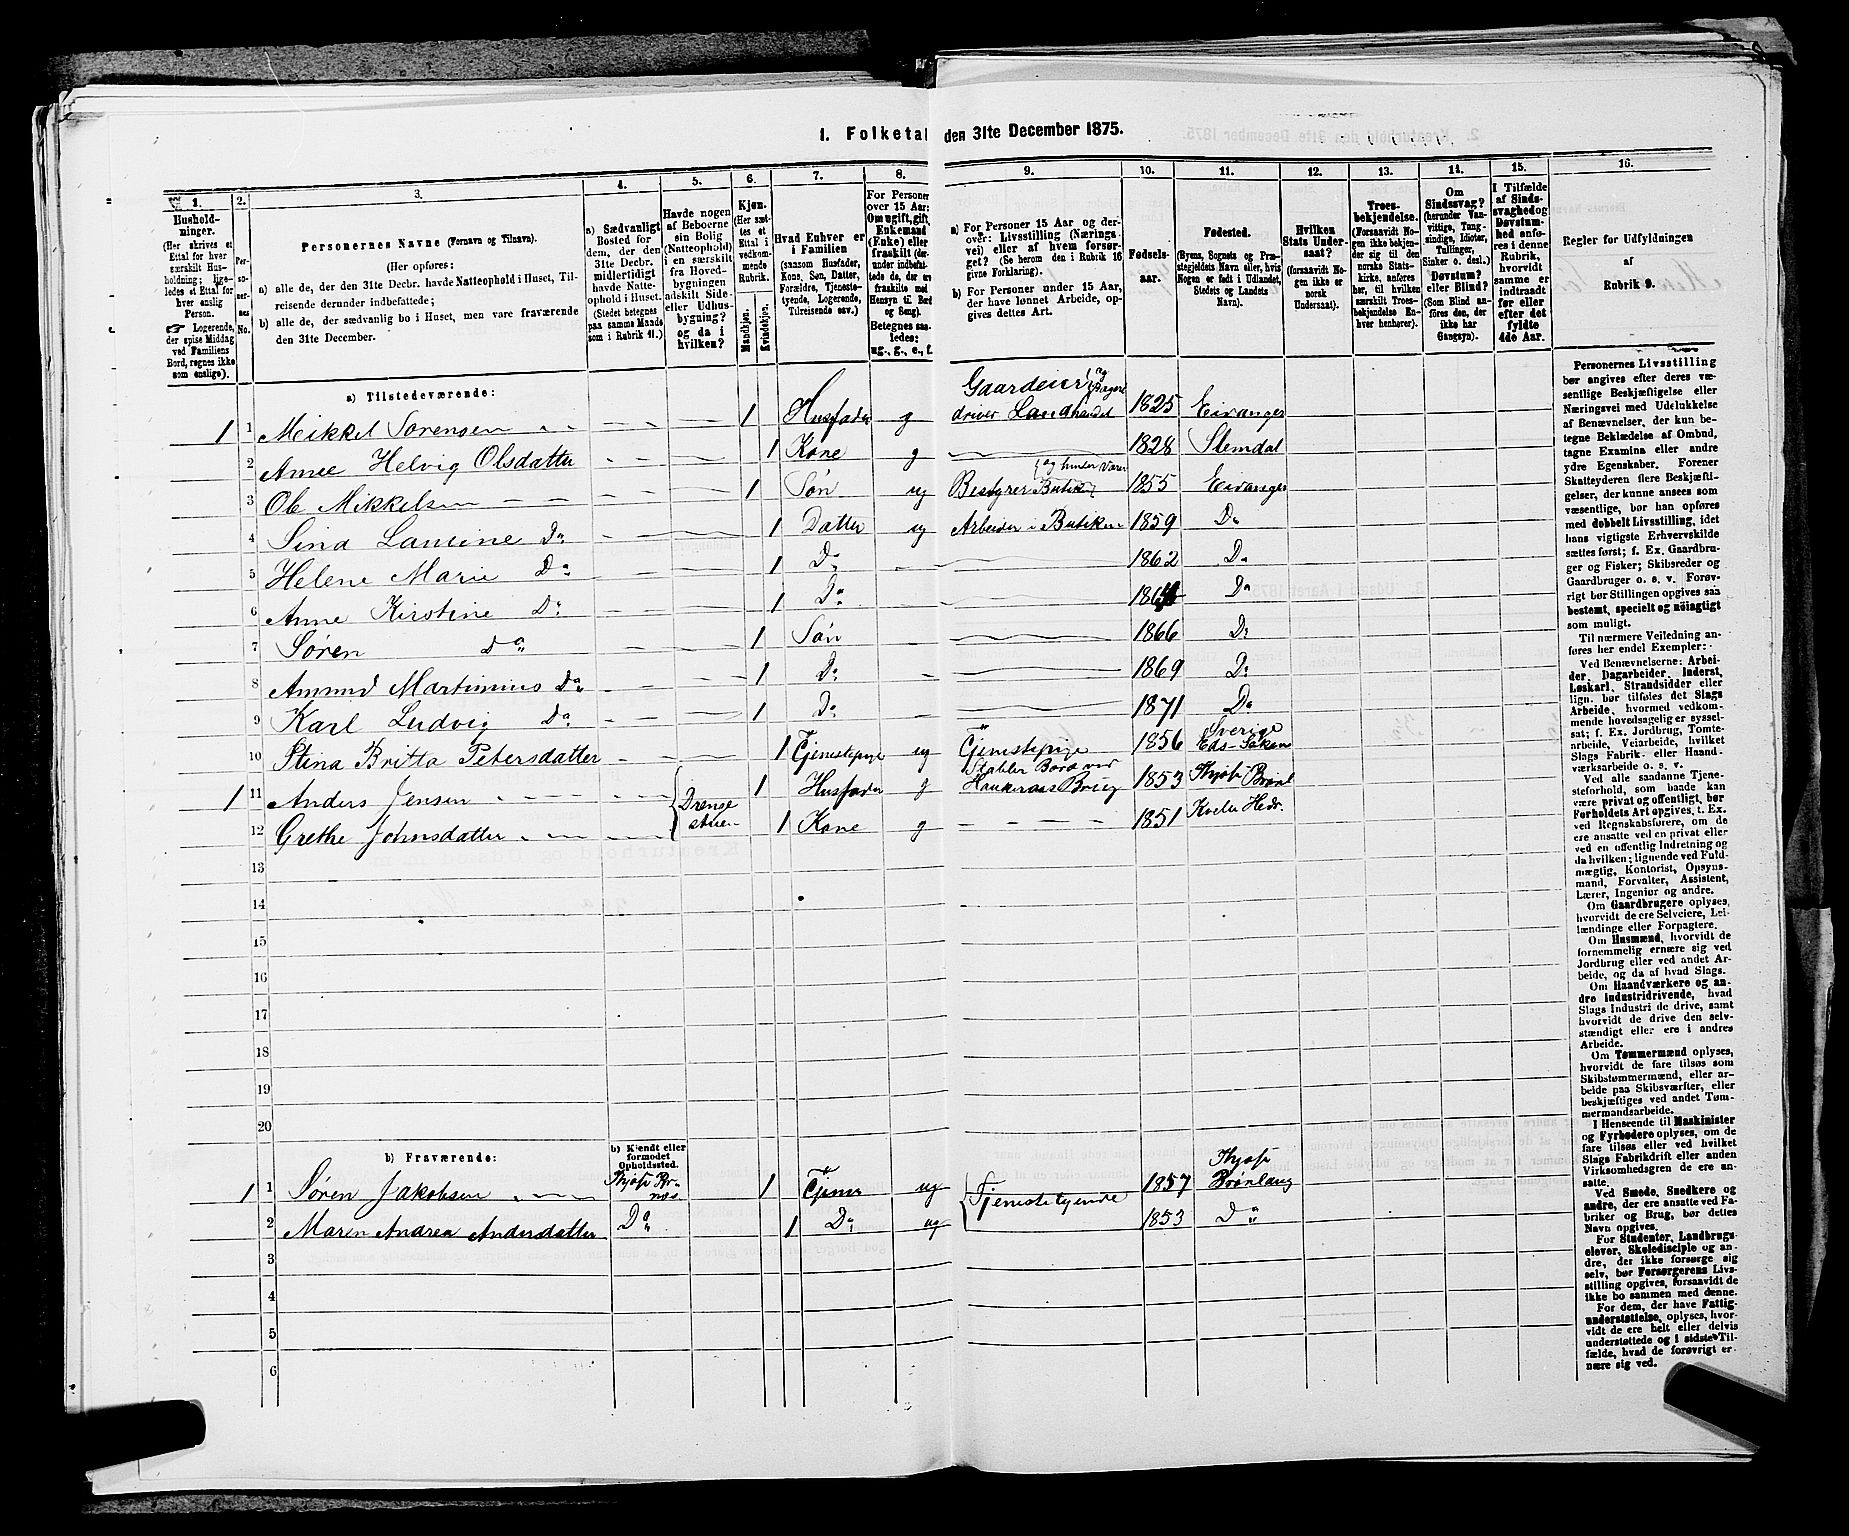 1. Folketal den 31te December 1875.
1. 2. 3. 4. 5. 6. 7. 8. 9. 10. 11. 12. 13. 14. 15. 16.
Hushold-
ninger.
(Her skrives et
Ettal for hver
særskilt Hus-
holdning; lige-
ledes et Ettal for
hver enslig
Person.
☞ Logerende,
der spise Middag
ved Familiens
Bord, regnes ikke
som enslige).
Per-
so-
ner-
nes
No.
Personernes Navne (Fornavn og Tilnavn).
(Her opføres:
a) alle de, der den 31te Decbr. havde Natteophold i Huset, Til-
reisende derunder indbefattede;
b) alle de, der sædvanlig bo i Huset, men vare fraværende
den 31te December.
a) Sædvanligt
Bosted for
dem, der den
31te Decbr.
midlertidigt
havde Natte-
ophold i Huset.
(Stedet betegnes
paa samme Maade
som i Rubrik 11.)
Havde nogen
af Beboerne
sin Bolig
(Natteophold)
i en særskilt
fra Hoved-
bygningen
adskilt Side-
eller Udhus-
bygning?
og da i
hvilken?
Kjøn.
(Her sæt-
tes et
Ettal i
vedkom-
mende
Rubrik.
Mandkjøn.
Kvindekjøn.
Hvad Enhver er
i Familien
(saasom Husfader,
Kone, Søn, Datter,
Forældre, Tjeneste-
tyende, Logerende,
Tilreisende osv.)
For Personer
over 15 Aar:
Om ugift, gift,
Enkemand
(Enke) eller
fraskilt
Betegnes saa-
ledes:
ug., g., e., f.
a) For Personer 15 Aar og der-
over: Livsstilling (Nærings-
vei) eller af hvem forsør-
get? (Se herom den i Rubrik 16
givne Forklaring).
b) For Personer under 15 Aar,
der have lønnet Arbeide, op-
gives dettes Art.
Fødsels-
aar.
Fødested.
(Byens, Sognets og Præ-
stegjeldets Navn eller, hvis
Nogen er født i Udlandet,
Stedets og Landets
Navn).
Hvilken
Stats Under-
saat?
(forsaavidt No-
gen ikke er
norsk
Undersaat).
Troes-
bekjendelse.
(Forsaavidt No-
gen ikke bekjen-
der sig til den
norske Stats-
kirke, anføres
her, til hvilken
særskilt Troes-
bekjendelse En-
hver henhører).
Om
Sindssvag?
(herunder Van-
vittige, Tung-
sindige, Idioter,
Tullinger,
Sinker o. desl.)
Døvstum?
eller Blind?
(Som Blind an-
føres den, der
ikke har
Gangsyn).
I Tilfælde
af Sinds-
svaghed og
Døvstum-
hed anfø-
res i denne
Rubrik,
hvorvidt
samme er
indtraadt
før eller
efter det
fyldte
4de Aar.
Regler for Udfyldningen
af
Rubrik 9.
a) Tilstedeværende:
1 1 Mikkel Sørensen 1 Husfader g Gaardeier og driver Landhandel 1825 Eivanger
2 Anne Helvig Olsdatter 1 Kone g 1828 Slemdal
3 Ole Mikkelsen 1 Søn ug Bestyrer Butiken 1855 Eivanger
4 Sina Laurine Do 1 Datter ug Arbeider i Butiken 1859 Do
5 Helene Marie Do 1 Do 1862 Do
6 Anne Kirstine Do 1 Do 1864 Do
7 Søren Do 1 Søn 1866 Do
8 Amund Martinius Do 1 Do 1869 Do
9 Karl Ludvig Do 1 Do 1871 Do
10 Stina Britta Petersdatter 1 Tjenestepige ug Tjenestepige 1856 Sverige Eds Soken
1 11 Anders Jensen Drengestuen 1 Husfader g Stabler Bord ved Brug 1853
12 Grethe Johnsdatter 1 Kone g 1851
13
14
15
16
17
18
19
20
b) Fraværende:
b) Kjendt eller
formodet
Opholdssted.
1 1 Søren Jakobsen 1 Tjener ug Tjenestetyende 1857
2 Maren Andrea Andersdatter Do 1 Do ug 1853 Do
3
4
5
6
Personernes Livsstilling
bør angives efter deres væ-
sentlige Beskjæftigelse eller
Næringsvei med Udelukkelse
af Benævnelser, der kun be-
tegne Beklædelse af Ombud,
tagne Examina eller andre
ydre Egenskaber. Forener
Skatteyderen flere Beskjæfti-
gelser, der kunne ansees som
væsentlige, bør han opføres
med dobbelt Livsstilling, idet
hans vigtigste Erhvervskilde
sættes først; f. Ex. Gaardbru-
ger og Fisker; Skibsreder og
Gaardbruger o. s. v. Forøv-
rigt bør Stillingen opgives saa
bestemt, specielt og nöiagtigt
som muligt.
Til nærmere Veiledning an-
føres her endel Exempler:
Ved Benævnelserne: Arbei-
der, Dagarbeider, Inderst,
Løskarl, Strandsidder eller
lign. bør tilføies det Slags
Arbeide, hvormed vedkom-
mende hovedsagelig er syssel-
sat; f. Ex. Jordbrug, Tomte-
arbeide, Veiarbeide, hvilket
Slags Fabrik- eller Haand-
værksarbeide o. s. v.
Ved alle saadanne Tjene-
steforhold, som baade kan
være privat og offentligt, bør
Forholdets Art opgives, f. Ex.
ved Regnskabsførere, om de
ere ansatte ved en privat eller
ved en offentlig Indretning og
da hvilken; lignende ved Fuld-
mægtig, Kontorist, Opsyns-
mand, Forvalter, Assistent,
Lærer, Ingeniør og andre.
Om Gaardbrugere oplyses,
hvorvidt de ere Selveiere, Lei-
lændinge eller Forpagtere.
Om Husmænd, hvorvidt de
fornemmelig ernære sig ved
Jordbrug eller ved andet Ar-
beide, og da af hvad Slags.
Om Haandværkere og an-
dre Industridrivende, hvad
Slags Industri de drive, samt
hvorvidt de drive den selv-
stændigt eller ere i andres
Arbeide.
Om Tømmermænd oplyses,
hvorvidt de fare tilsøs som
Skibstømmermænd, eller ar-
beide paa Skibsværfter, eller
beskjæftiges ved andet Tøm-
mermandsarbeide.
I Henseende til Maskinister
og Fyrbødere oplyses, om de
fare tilsøs eller ved hvilket
Slags Fabrikdrift eller anden
Virksomhedsgren de ere an-
satte.
Ved Smede, Snedkere og
andre, der ere ansatte ved Fa-
briker og Brug, bør dettes
Navn opgives.
For Studenter, Landbrugs-
elever, Skoledisciple og an-
dre, der ikke forsørge sig
selv, bør Forsørgerens Livs-
stilling opgives, forsaavidt de
ikke bo sammen med denne.
For dem, der have Fattig-
understøttelse, oplyses, hvor-
vidt de ere helt eller delvis
understøttede og i sidste Til-
fælde, hvad de forøvrigt er-
nære sig ved.